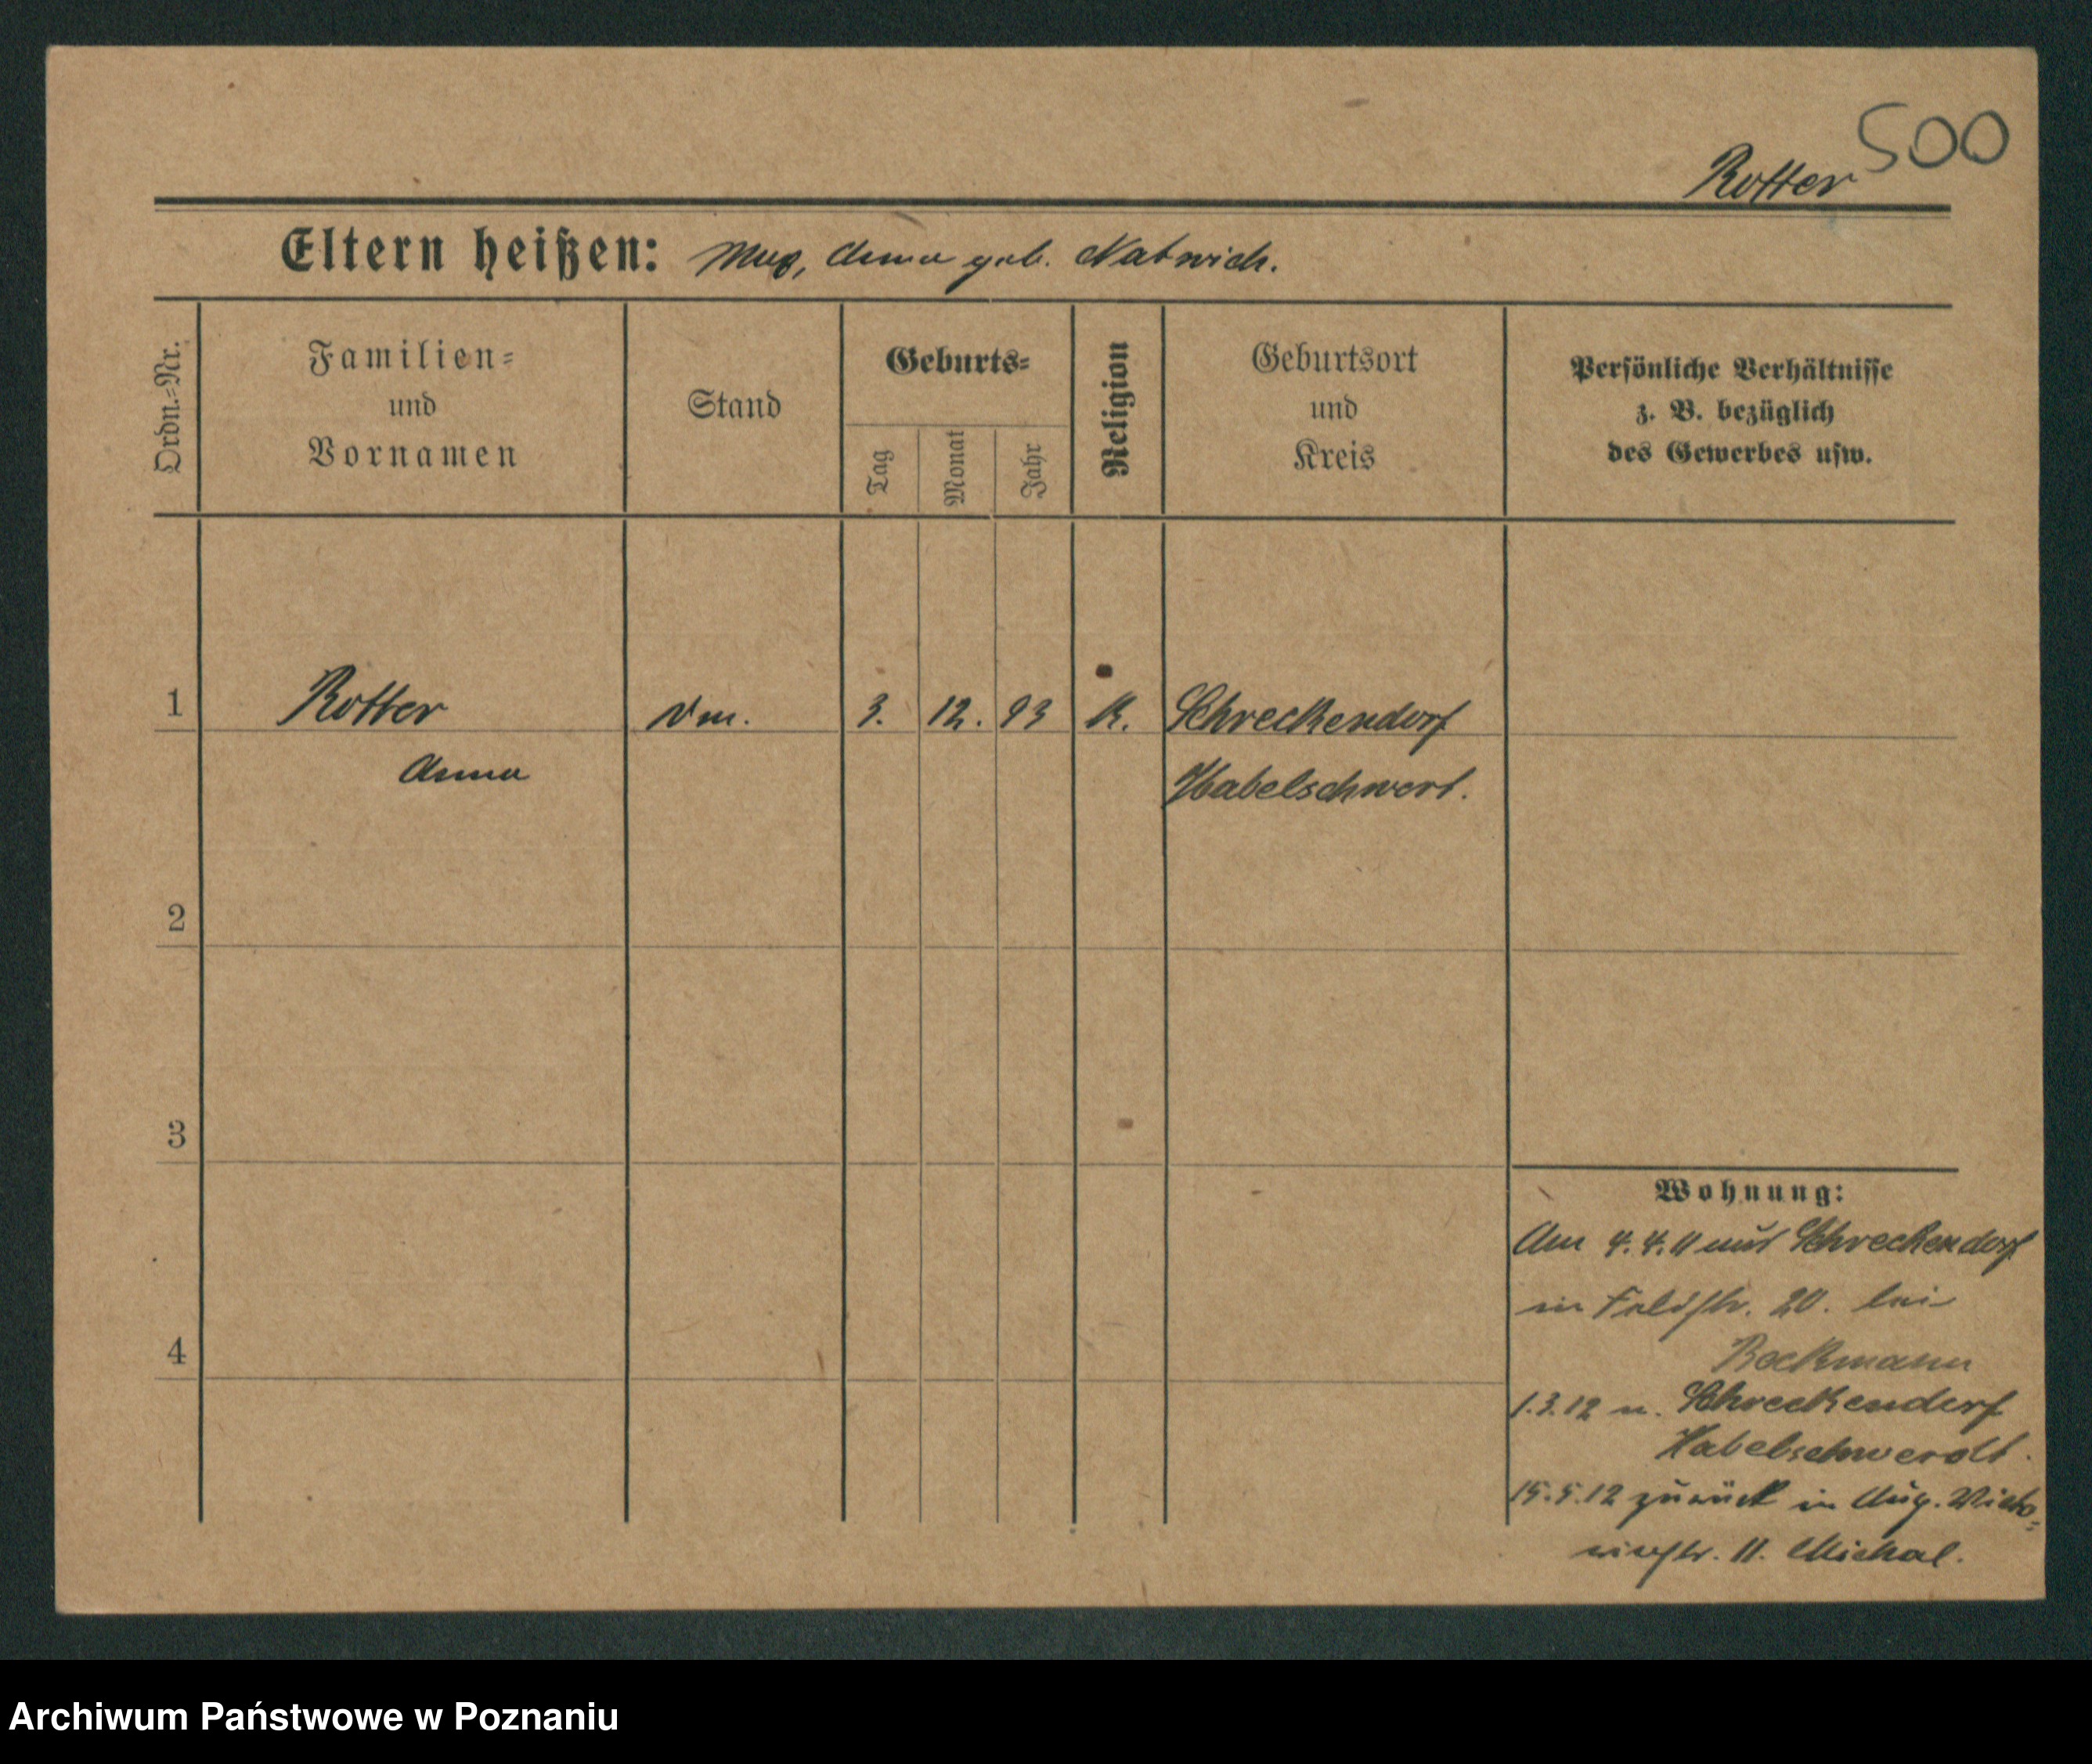 500
Rotter
Eltern heißen: Aug, Anna geb. Natwich.
Ordn.-Nr.
Familien-
und
Vornamen
Stand
Geburts-
Tag
Monat
Jahr
Religion
Geburtsort
und
Kreis
Persönliche Verhältnisse
z. B. bezüglich
des Gewerbes usw.
1 Rotter 3. 12. 93 K. Schreckendorf
Anna Habelschwert.
2
3
4
Wohnung:
Am 4.4.11 aus Schreckendorf
in Feldstr. 20. bei
Beckmann
1.3.12 n. Schreckendorf
Habelschwerdt.
15.5.12 zurück in Aug. Victo-
riastr. 11. Michal.
Archiwum Państwowe w Poznaniu